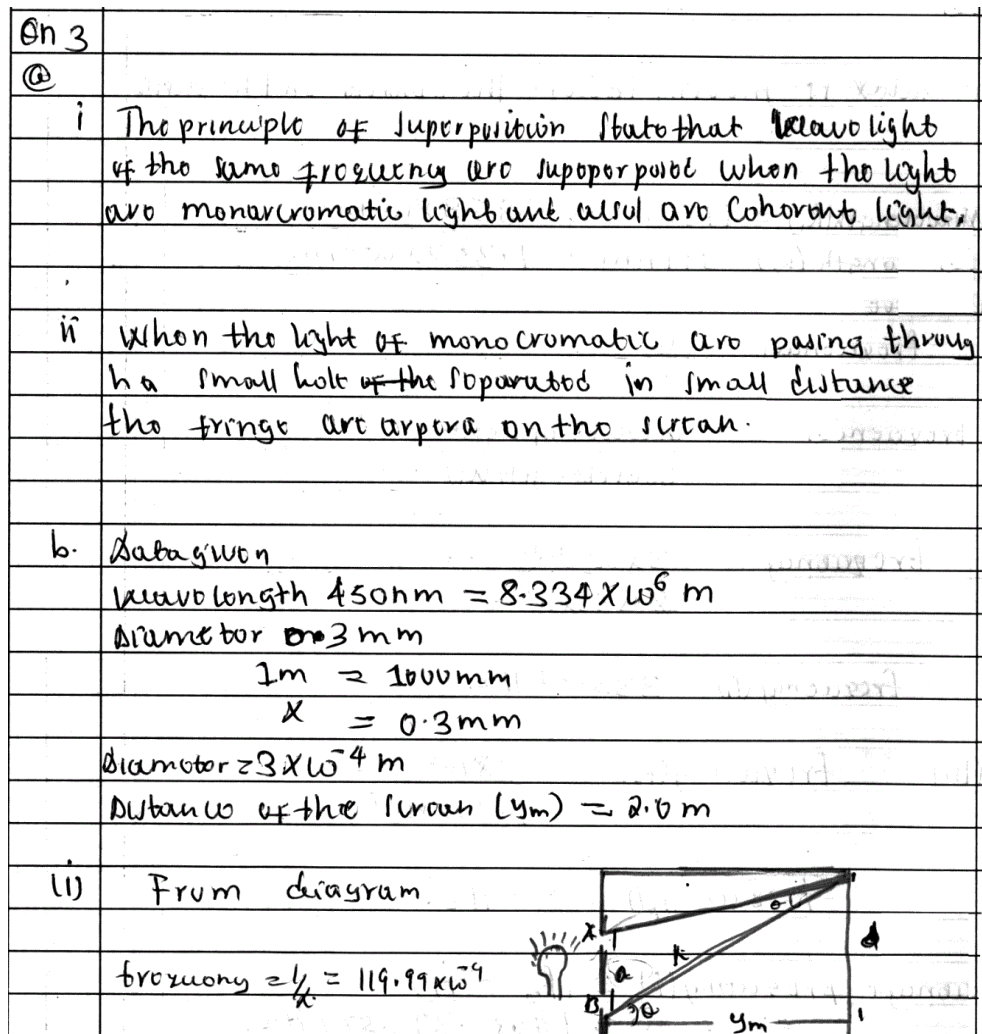 Qn 3
(a)
i The principle of superposition state that wave light
of the same frequency are supoperposed when the light
are monarcromatic light and alsol are coherent light.
ii When the light of monocromatic are pasing throug
h a small hole of the separated in small distance
the fringe are arpera on the screan.
b. Data given
wave length 450nm = 8.334 × 10⁶ m
Diameter 3 mm
1m = 1000mm
x = 0.3mm
Diameter = 3 × 10⁻⁴ m
Distance of the screan (ym) = 2.0 m
(i) From diagram
frequeny = 1/λ = 119.99 × 10⁻⁹
X
a
B
θ
ym